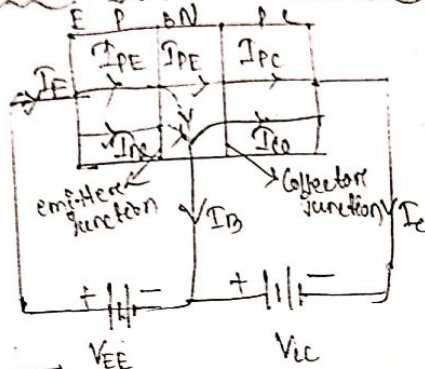 E P BN P C
I_PE I_PE I_PC
I_E
I_CO
emitter junction
Collector junction
I_B I_C
+ − + −
V_EE V_CC